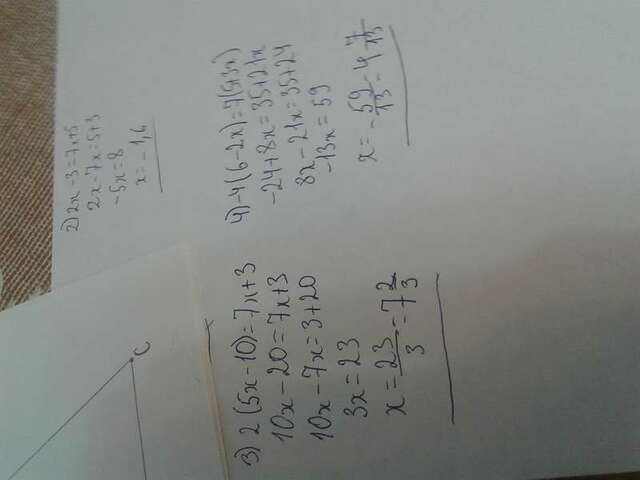 C
2) 2x - 3 = 7x + 5
2x - 7x = 5 + 3
-5x = 8
x = -1,6
3) 2 (5x - 10) = 7x + 3
10x - 20 = 7x + 3
10x - 7x = 3 + 20
3x = 23
x = 23/3 = 7 2/3
4) -4 (6 - 2x) = 7 (5 + 3x)
-24 + 8x = 35 + 21x
8x - 21x = 35 + 24
-13x = 59
x = - 59/13 = 4 7/13